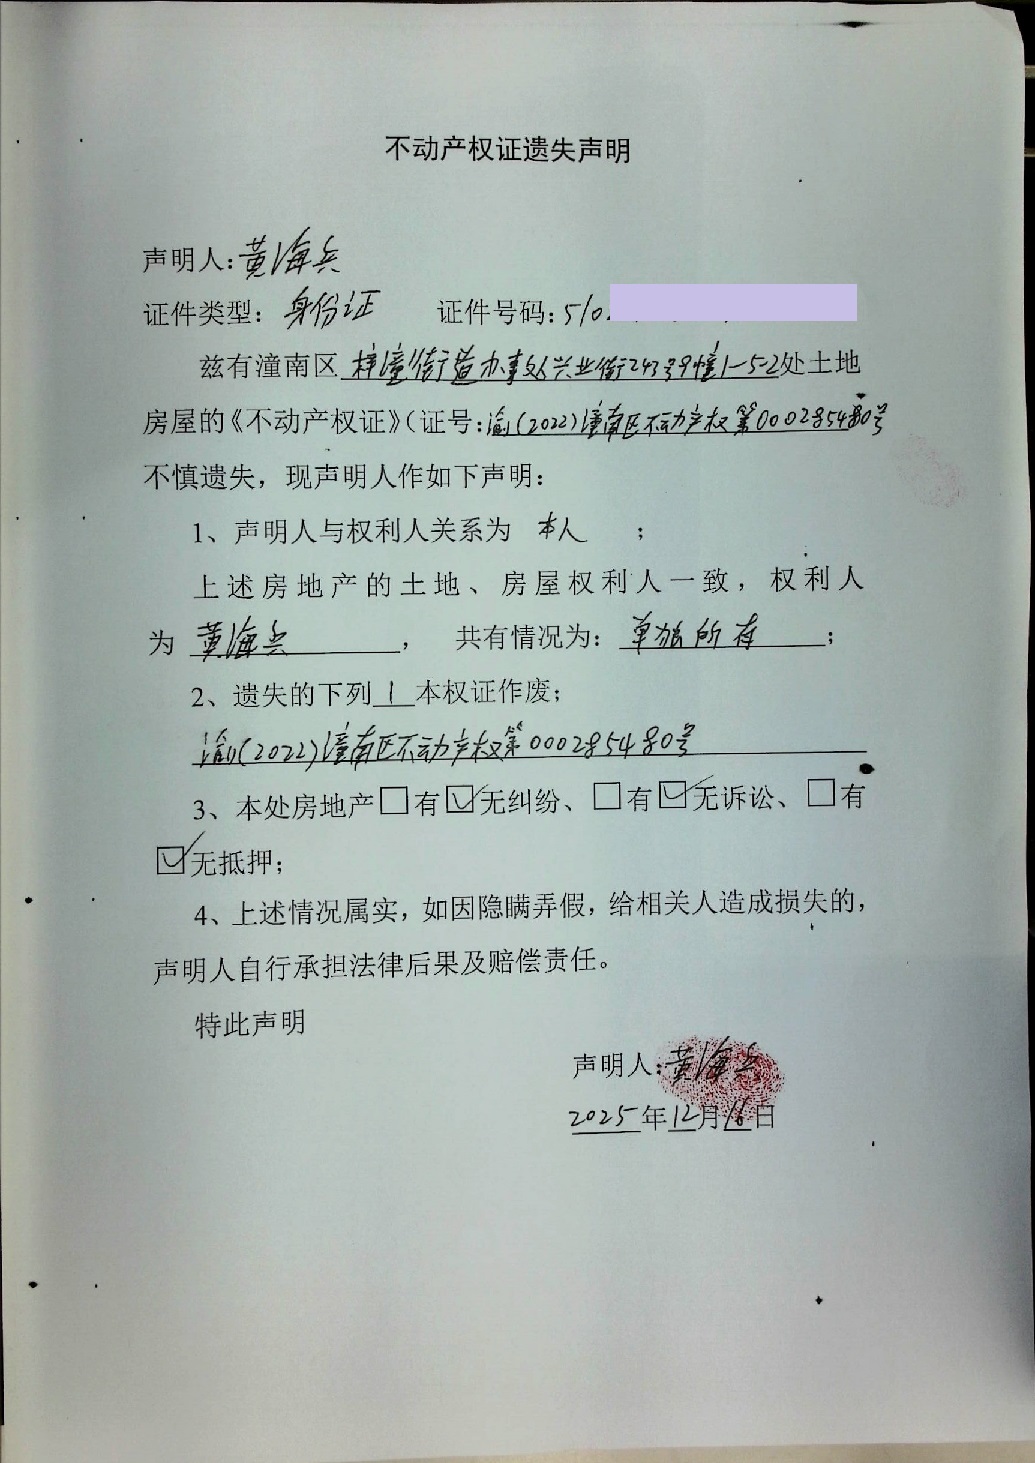 不动产权证遗失声明
声明人：黄海兵
证件类型：身份证 证件号码：510
兹有潼南区梓潼街道办事处兴业街243号9幢1-5-2处土地
房屋的《不动产权证》（证号：渝(2022)潼南区不动产权第000285480号
不慎遗失，现声明人作如下声明：
1、声明人与权利人关系为 本人 ；
上述房地产的土地、房屋权利人一致，权利人
为 黄海兵 ， 共有情况为：单独所有 ；
2、遗失的下列 1 本权证作废；
渝(2022)潼南区不动产权第000285480号
3、本处房地产□有☑无纠纷、□有☑无诉讼、□有
☑无抵押；
4、上述情况属实，如因隐瞒弄假，给相关人造成损失的，
声明人自行承担法律后果及赔偿责任。
特此声明
声明人：黄海兵
2025年12月16日